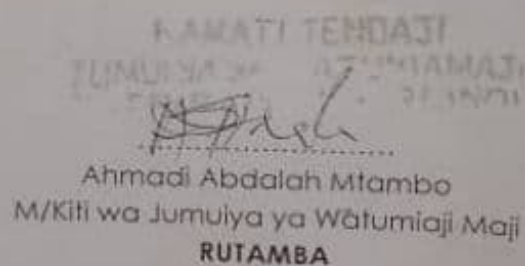 KAMATI TENDAJI
JUMUIYA
Ahmadi Abdalah Mtambo
M/Kiti wa Jumuiya ya Watumiaji Maji
RUTAMBA